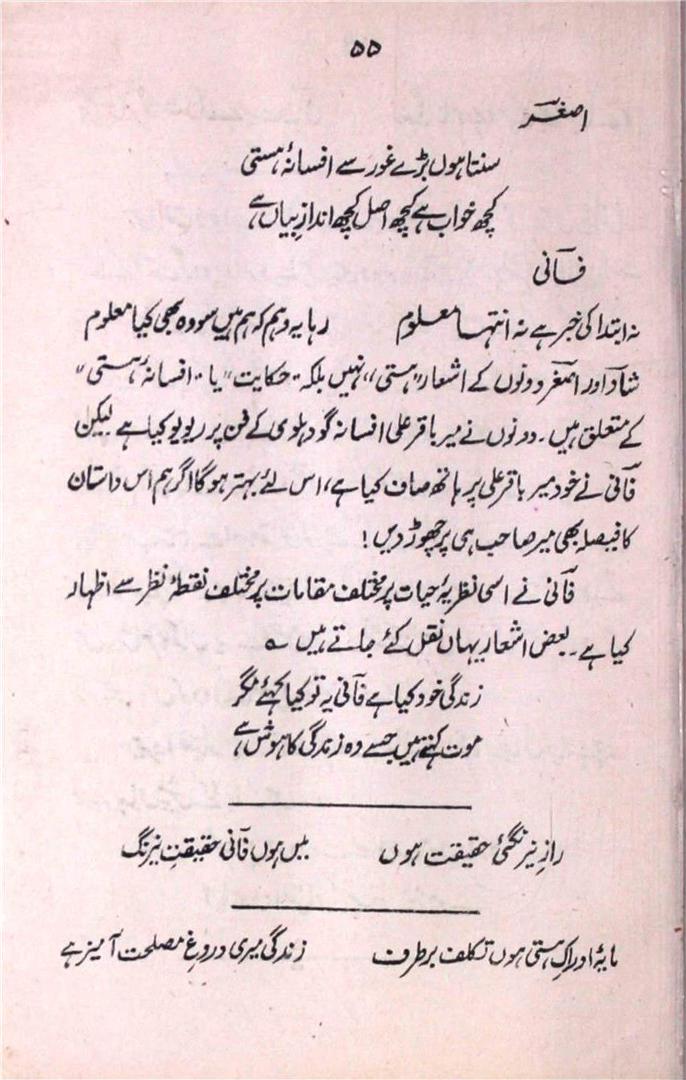 ۵۵
اصغرؔ
سنتا ہوں بڑے غور سے افسانۂ ہستی
کچھ خواب ہے کچھ اصل کچھ انداز بیاں ہے
فانیؔ
نہ ابتدا کی خبر ہے نہ انتہا معلوم رہا یہ وہم کہ ہم ہیں سو وہ بھی کیا معلوم
شادؔ اور اصغرؔ دونوں کے اشعار "ہستی"، نہیں بلکہ "حکایت" یا "افسانۂ ہستی"
کے متعلق ہیں۔ دونوں نے میر باقر علی افسانہ گو دہلوی کے فن پر ریویو کیا ہے لیکن
فانیؔ نے خود میر باقر علی پر ہاتھ صاف کیا ہے، اس لئے بہتر ہوگا اگر ہم اس داستان
کا فیصلہ بھی میر صاحب ہی پر چھوڑ دیں!
فانیؔ نے اسی نظریۂ حیات پر مختلف مقامات پر مختلف نقطۂ نظر سے اظہار
کیا ہے۔ بعض اشعار یہاں نقل کئے جاتے ہیں ؎
زندگی خود کیا ہے فانیؔ یہ تو کیا کہئے مگر
موت کہتے ہیں جسے وہ زندگی کا ہوش ہے
رازِ نیرنگئ حقیقت ہوں میں ہوں فانیؔ حقیقتِ نیرنگ
مایۂ ادراکِ ہستی ہوں تکلف بر طرف زندگی میری دروغِ مصلحت آمیز ہے